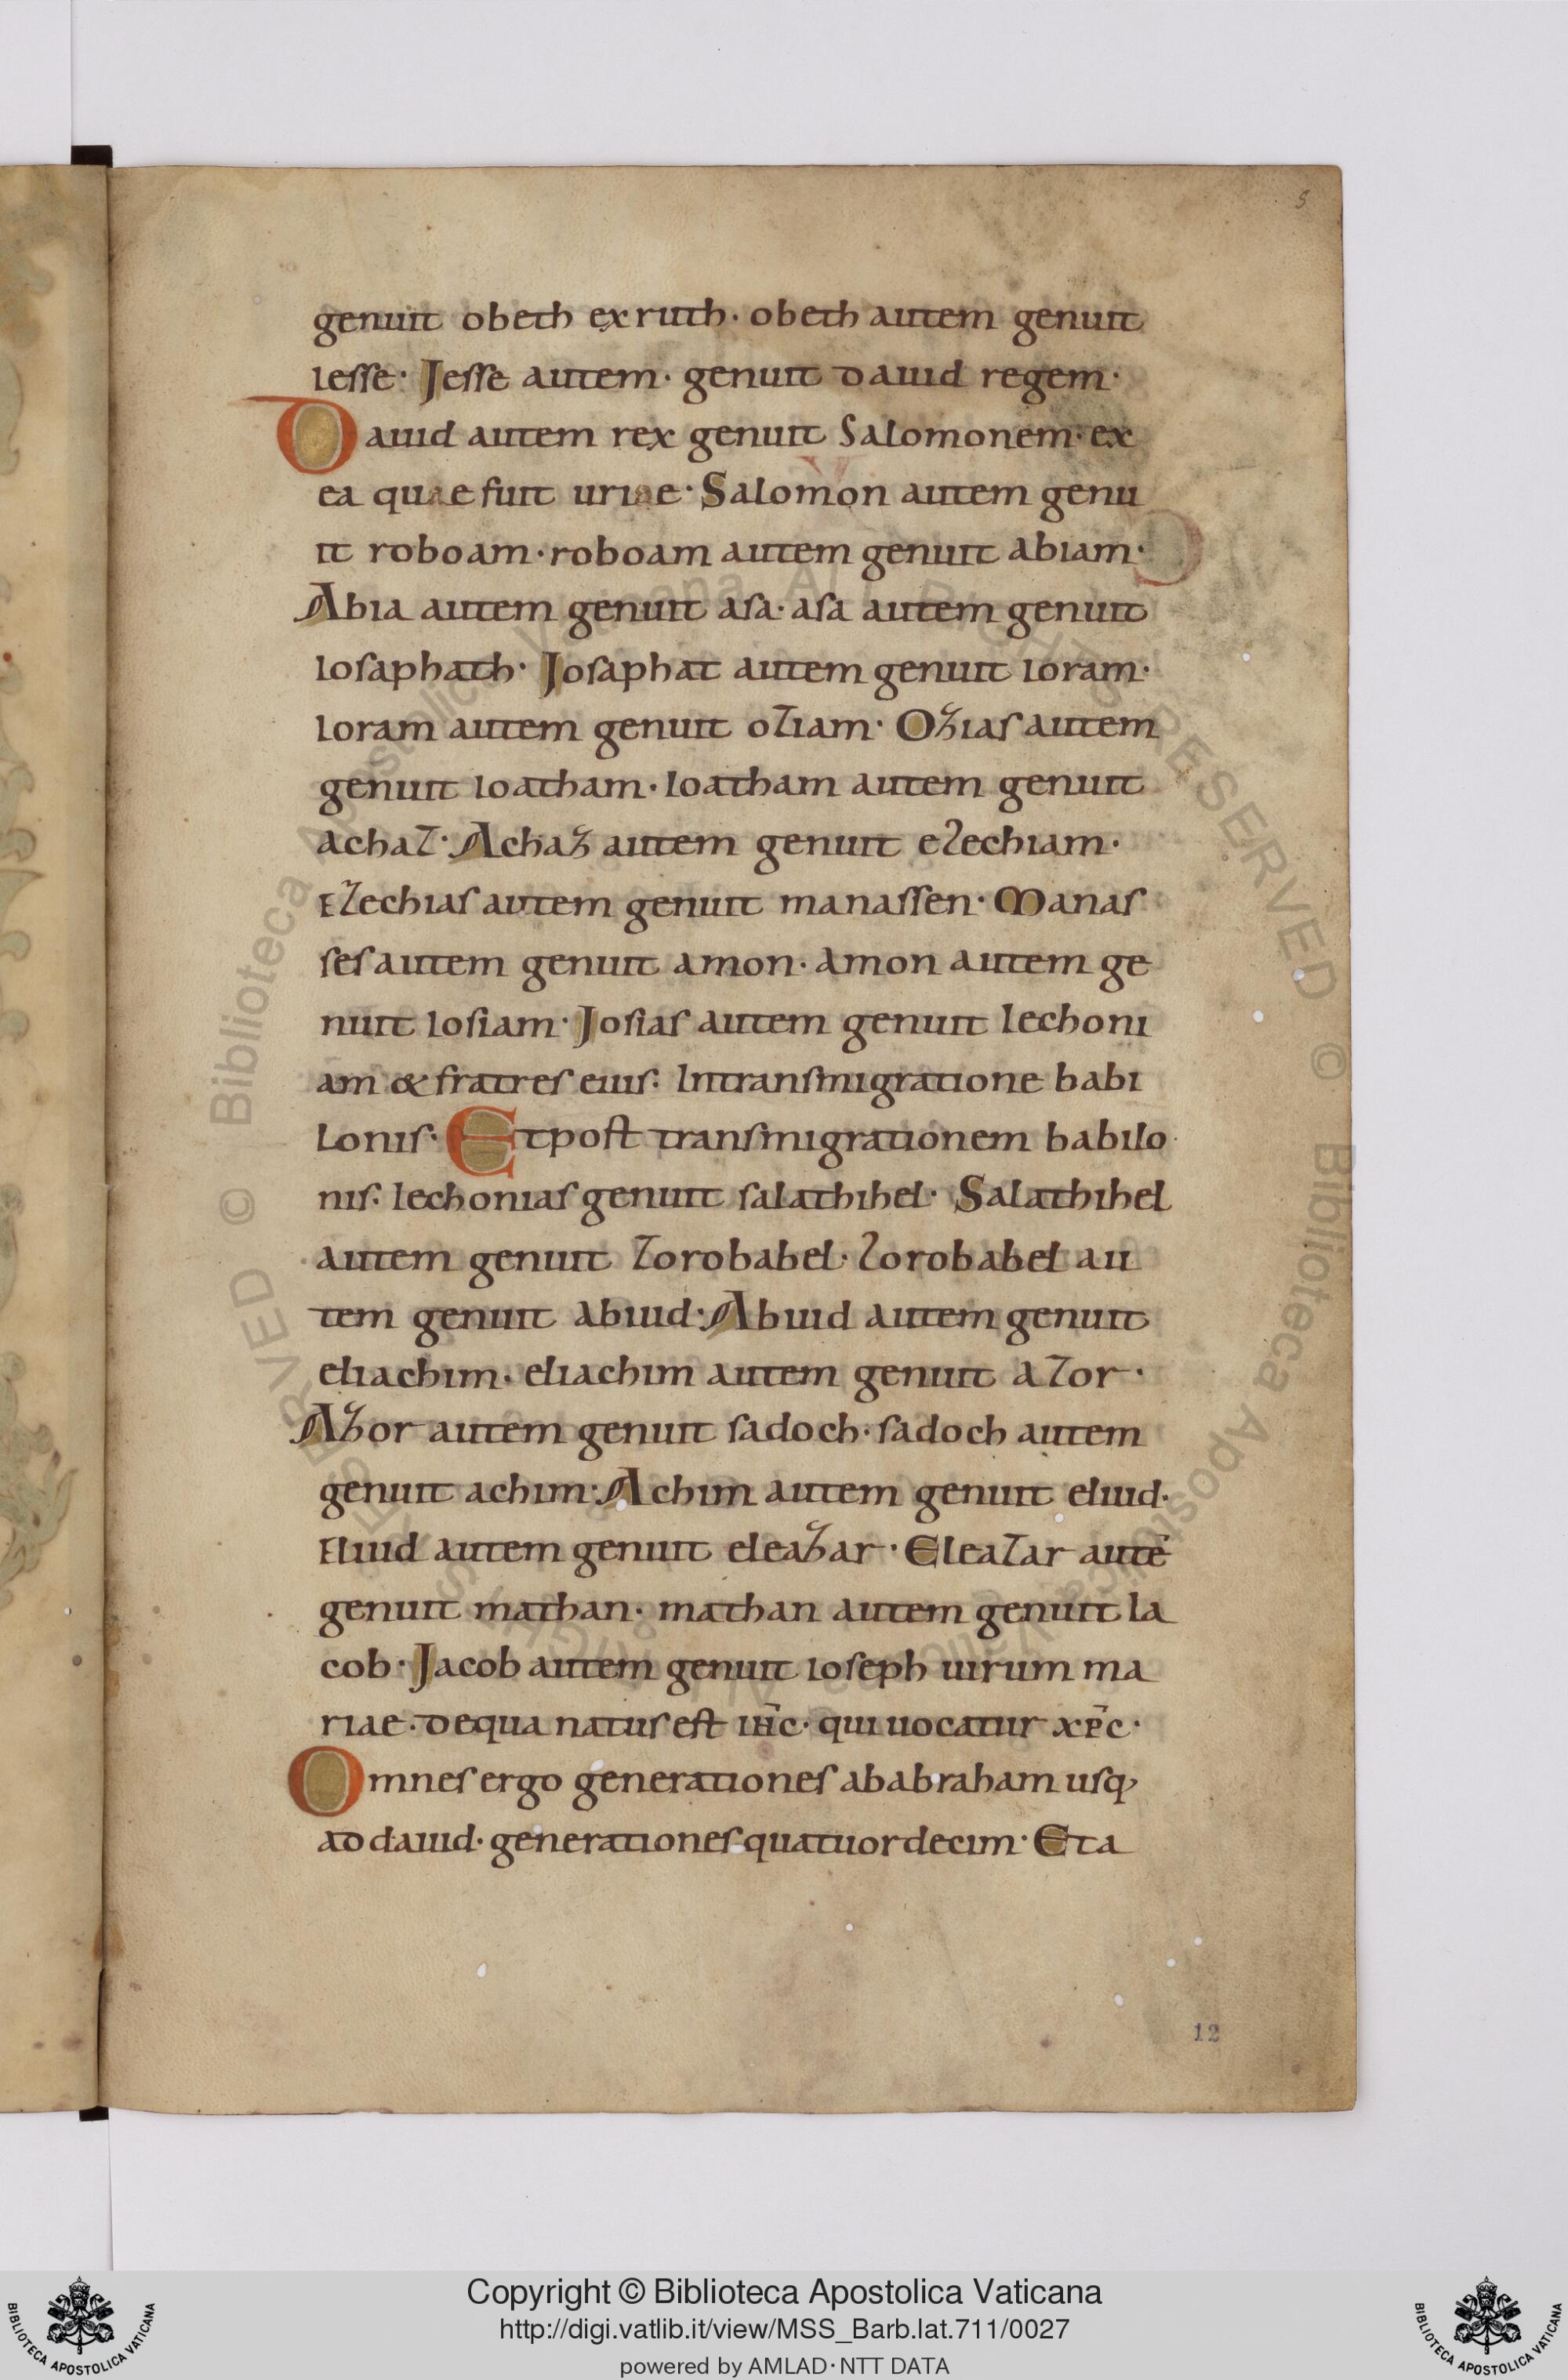 5
genuit obeth ex ruth· obeth autem genuit
iesse· Jesse autem· genuit dauid regem·
Dauid autem rex genuit Salomonem· ex
ea quae fuit uriae· Salomon autem genu
it roboam· roboam autem genuit abiam·
Abia autem genuit asa· asa autem genuit
iosaphath· Josaphat autem genuit ioram·
Ioram autem genuit oziam· Ozias autem
genuit ioatham· Ioatham autem genuit
achaz· Achaz autem genuit ezechiam·
Ezechias autem genuit manassen· Manas
ses autem genuit amon· Amon autem ge
nuit Iosiam· Josias autem genuit Iechoni
am & fratres eius: In transmigratione babi
lonis· Et post transmigrationem babilo
nis: Iechonias genuit salathihel· Salathihel
autem genuit zorobabel· Zorobabel au
tem genuit abiud· Abiud autem genuit
eliachim· eliachim autem genuit azor·
Azor autem genuit sadoch· sadoch autem
genuit achim· Achim autem genuit eliud·
Eliud autem genuit eleazar· Eleazar autē
genuit mathan· mathan autem genuit Ia
cob· Jacob autem genuit ioseph uirum ma
riae· de qua natus est ih̄c· qui uocatur xp̄c·
Omnes ergo generationes ab abraham usq;
ad dauid· generationes quatuordecim· Et a
12
© Biblioteca Apostolica Vaticana ALL RIGHTS RESERVED © Biblioteca Apostolica Vaticana ALL RIGHTS RESERVED
Copyright © Biblioteca Apostolica Vaticana
http://digi.vatlib.it/view/MSS_Barb.lat.711/0027
powered by AMLAD·NTT DATA
BIBLIOTECA APOSTOLICA VATICANA
BIBLIOTECA APOSTOLICA VATICANA